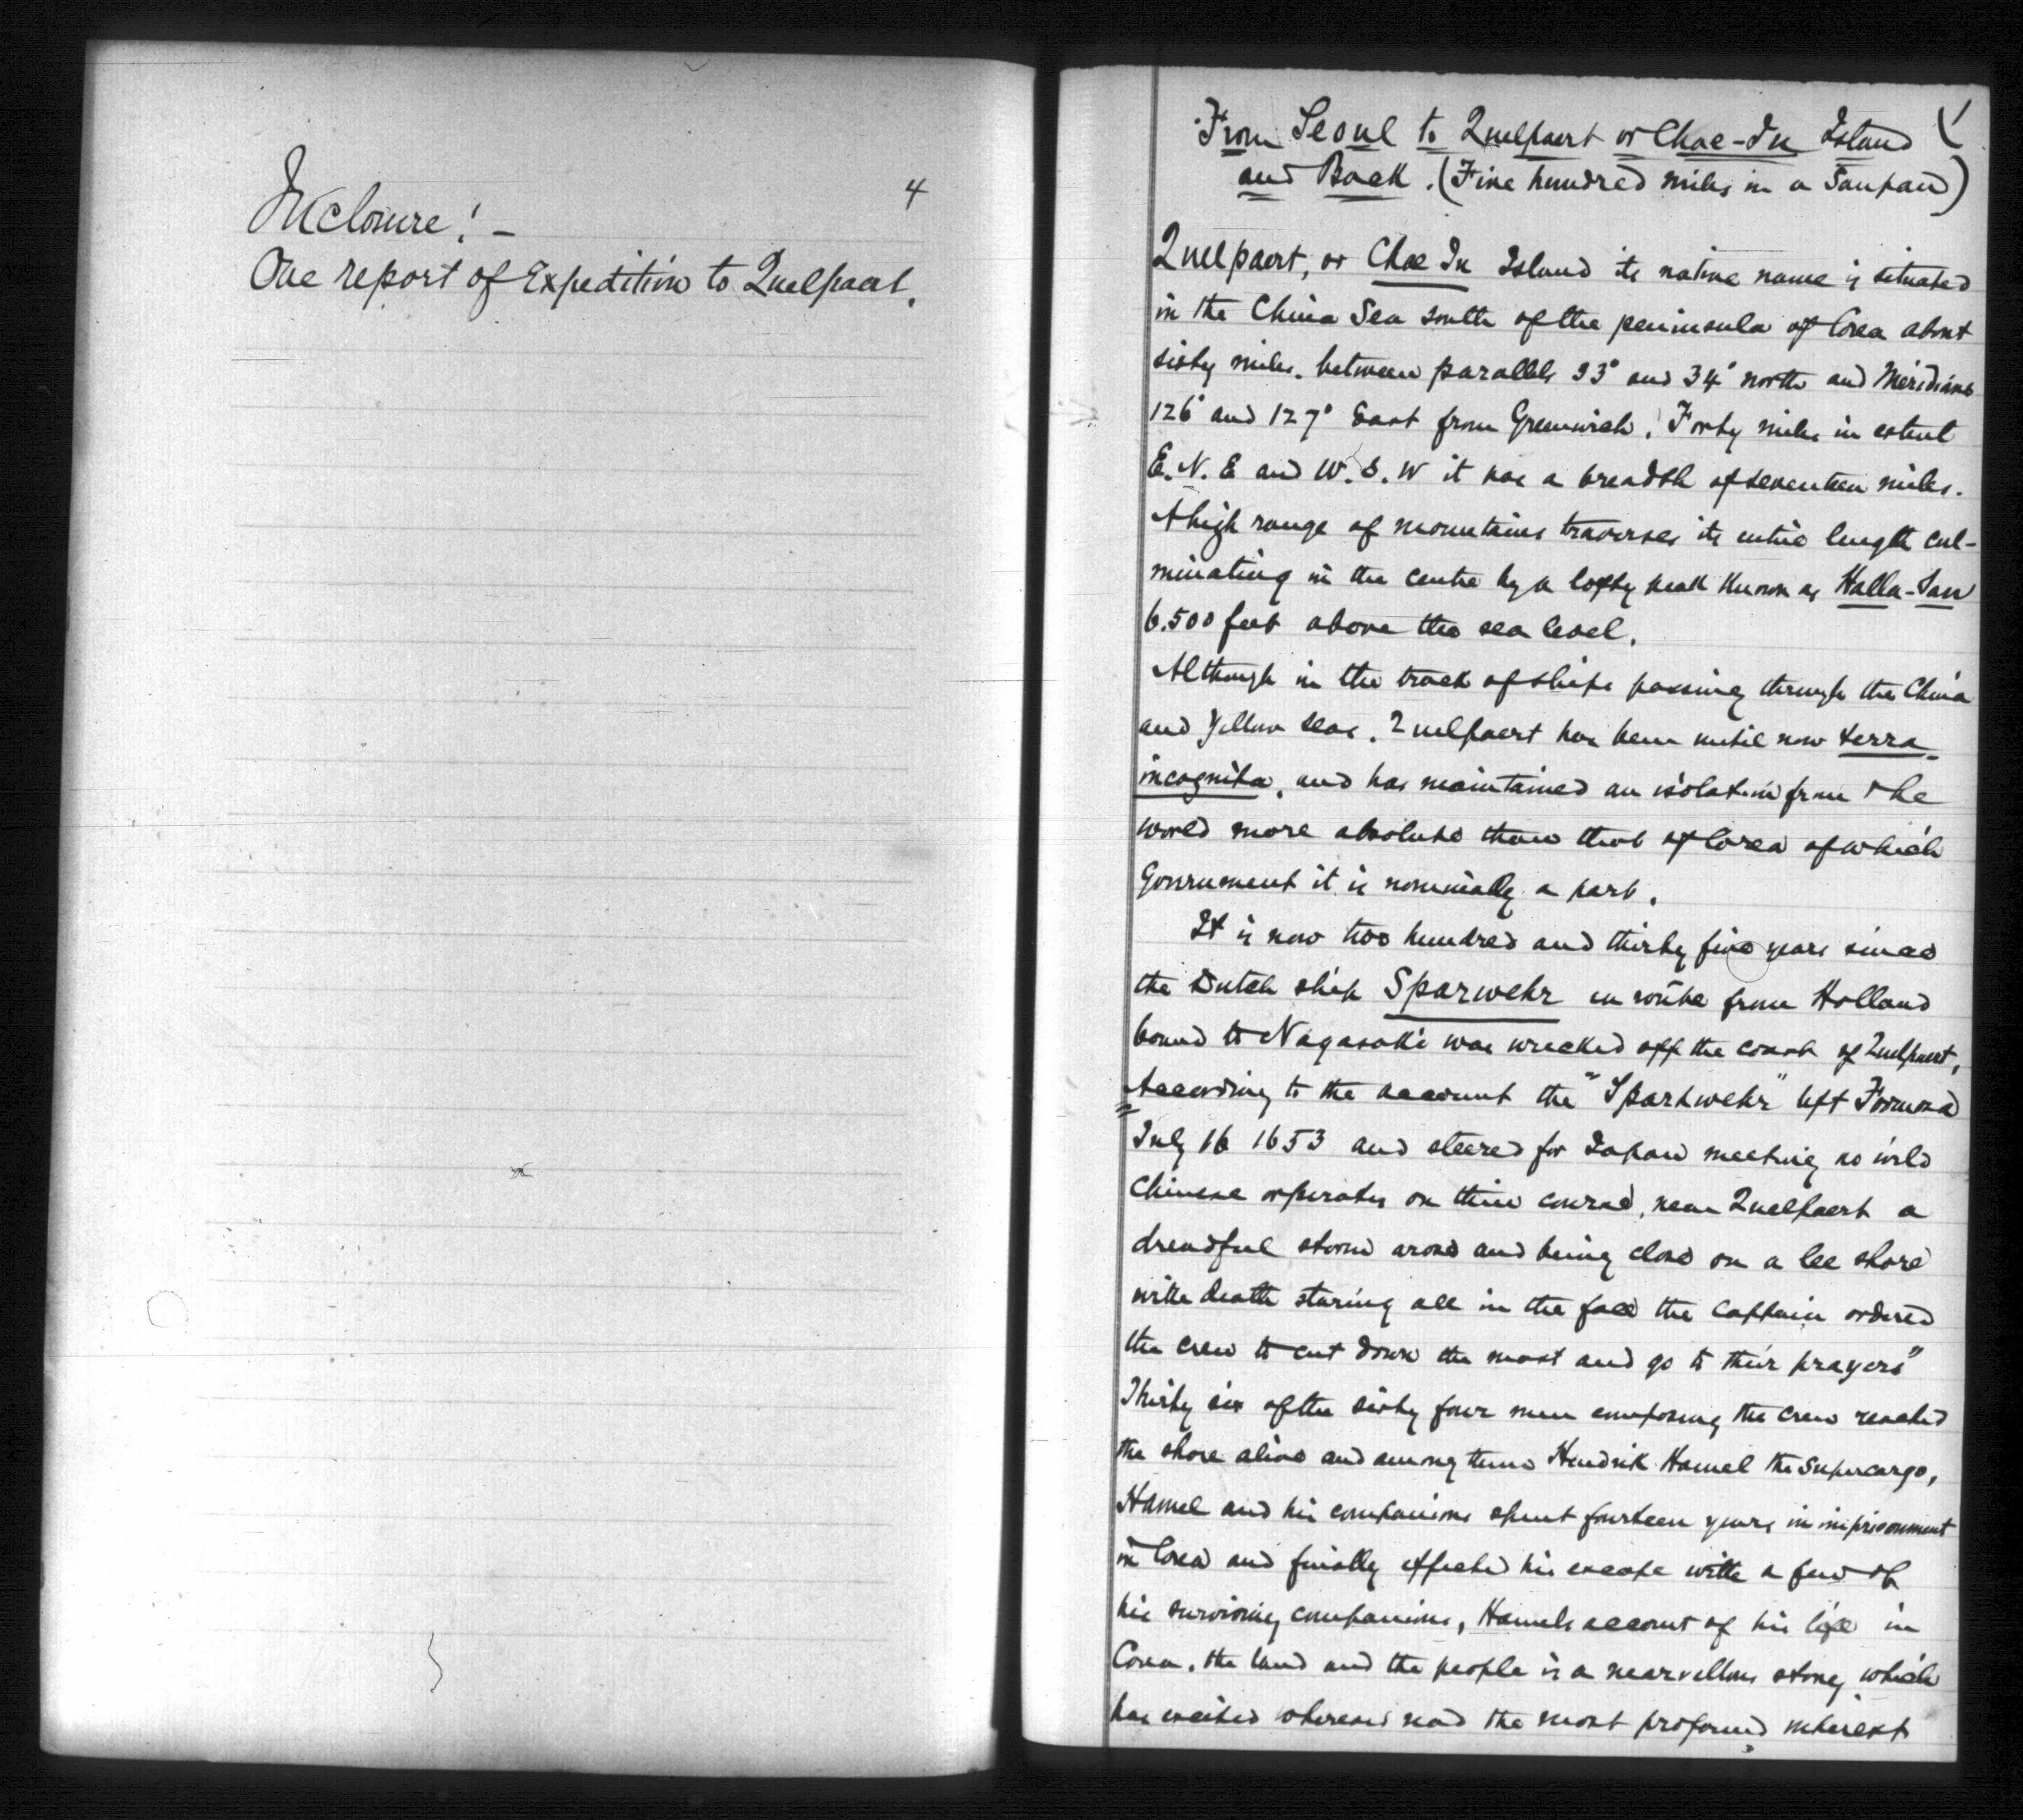 4
Inclosure: -
One report of Expedition to Quelpaert.
1
From Seoul to Quelpaert or Chae-Ju Island
and Back. (Five hundred miles in a Sanpan)
Quelpaert, or Chae Ju Island its native name is situated
in the China Sea south of the peninsula of Corea about
sixty miles. between parallels 33° and 34° north and Meridians
126° and 127° East from Greenwich. Forty miles in extent
E. N. E and W. S. W it has a breadth of seventeen miles.
A high range of mountains traverses its entire length cul-
minating in the centre by a lofty peak known as Halla-San
6.500 feet above the sea level.
Although in the track of ships passing through the China
and Yellow seas. Quelpaert has been until now terra
incognita, and has maintained an isolation from the
world more absolute than that of Corea of which
Government it is nominally a part.
It is now two hundred and thirty five years since
the Dutch ship Sparwehr en route from Holland
bound to Nagasaki was wrecked off the coast of Quelpaert,
According to the account the "Sparhwehr" left Formosa
July 16 1653 and steered for Japan meeting no wild
Chinese or pirates on their course, near Quelpaert a
dreadful storm arose and being close on a lee shore
with death staring all in the face the Captain ordered
the crew to cut down the mast and go to their prayers"
Thirty six of the sixty four men composing the crew reached
the shore alive and among them Hendrik Hamel the Supercargo,
Hamel and his companions spent fourteen years in imprisonment
in Corea and finally effected his escape with a few of
his surviving companions, Hamels account of his life in
Corea. the land and the people is a marvellous story which
has excited wherever read the most profound interest